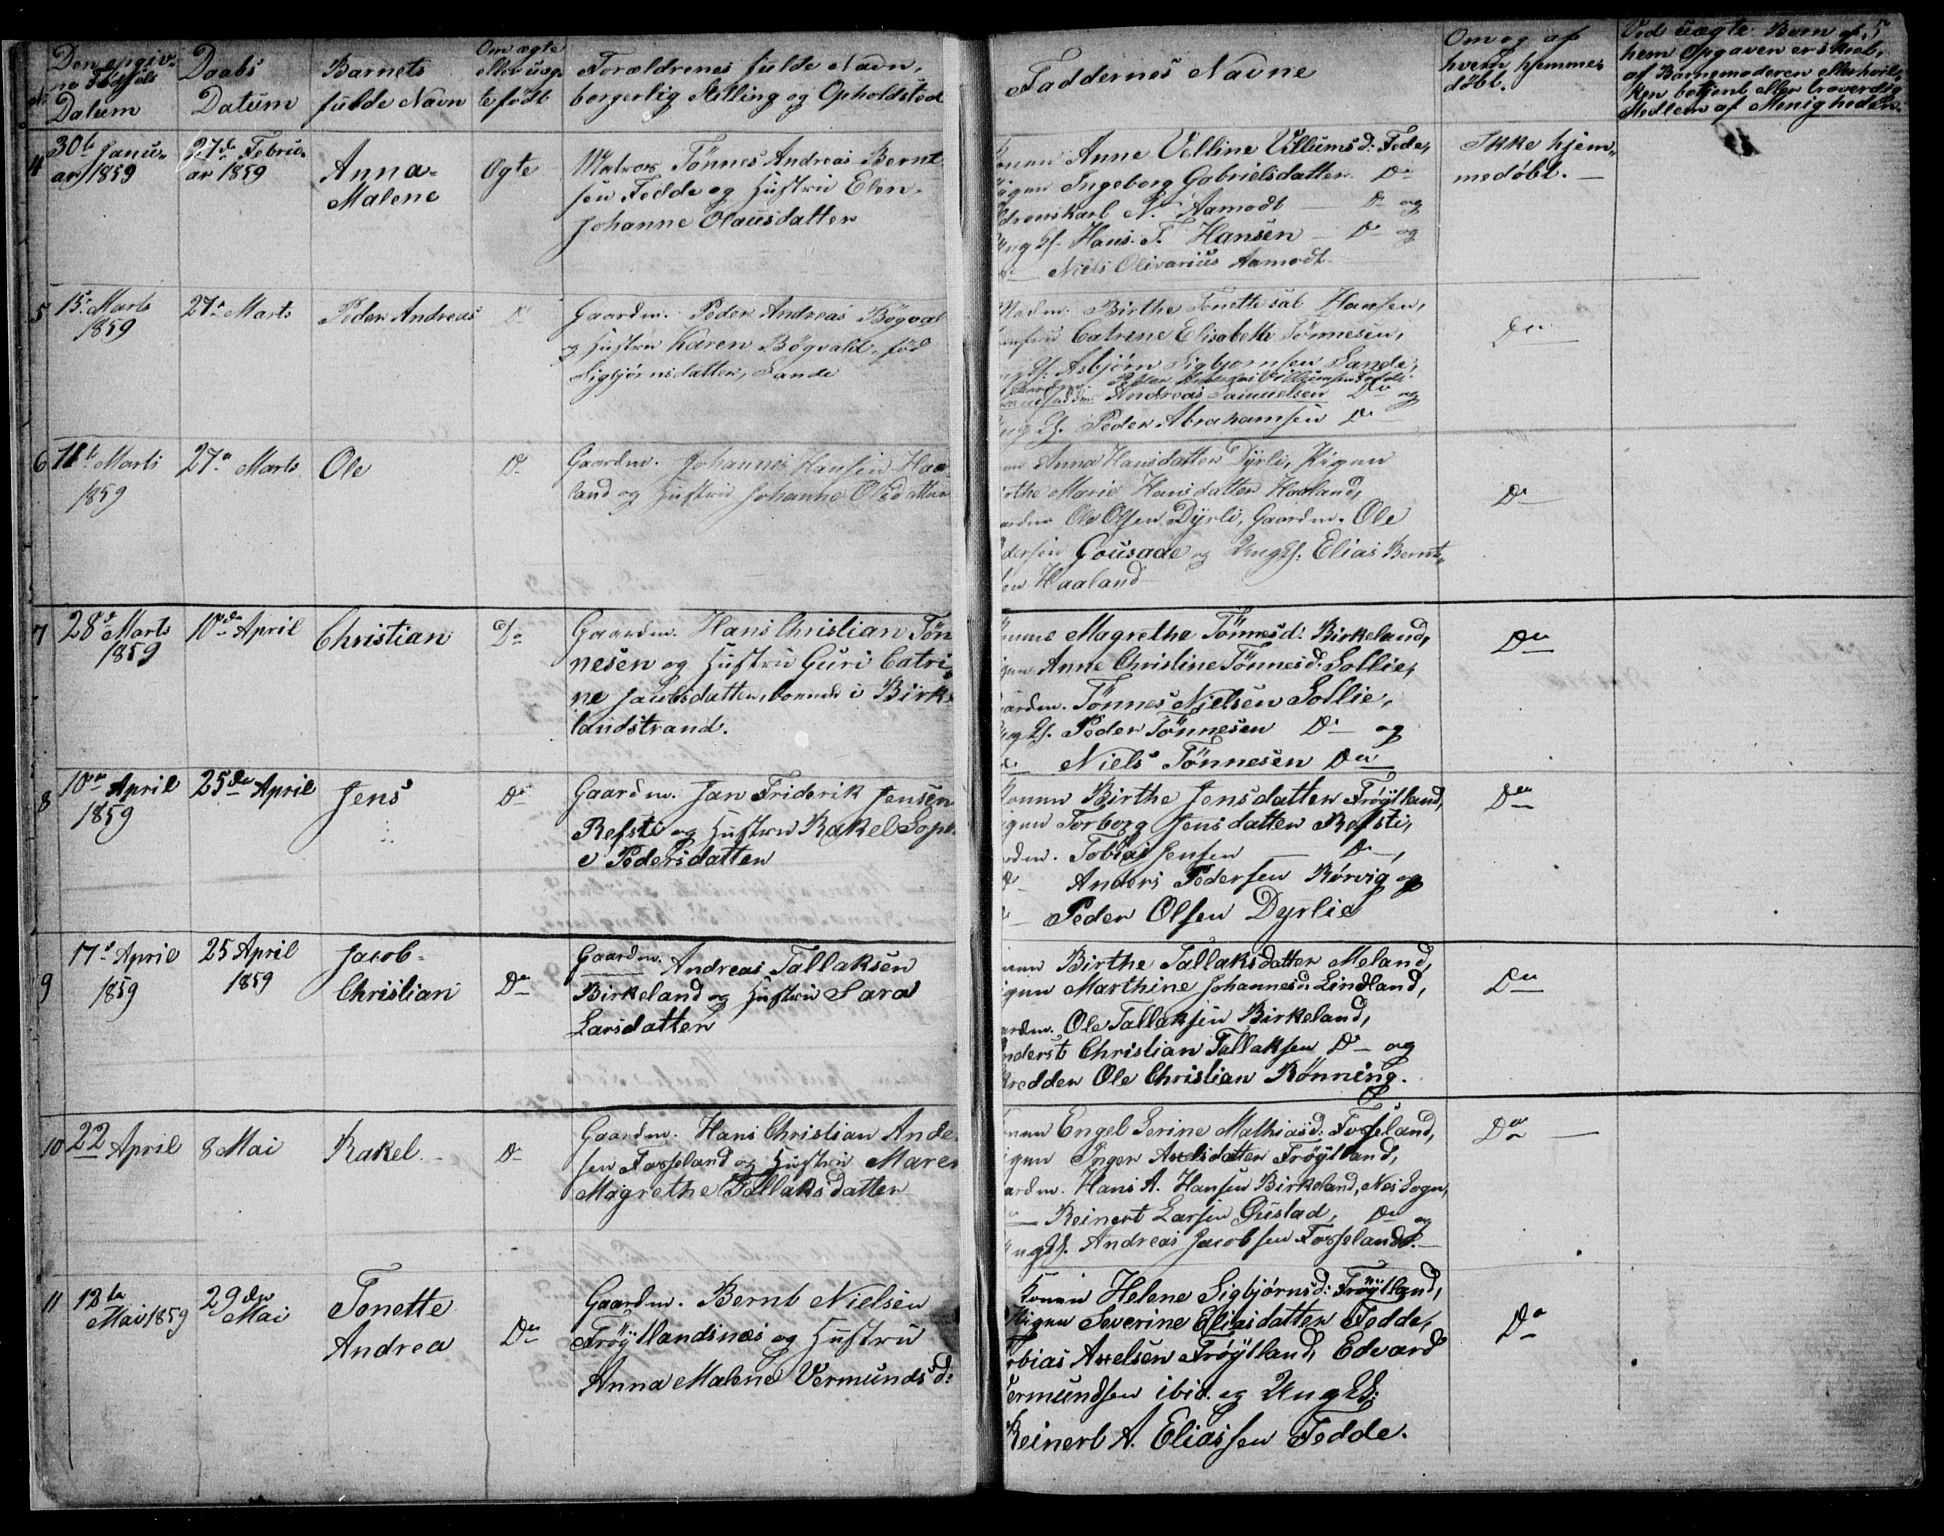 Den opgiv-
ne Fødsels
Datum
Daabs
Datum
Barnets
fulde Navn
Om ægte
eller uæg-
te født
Forældrenes fulde Navn,
borgerlig Stilling og Opholdsted
Faddernes Navne
Om og af
hvem hjemme-
døbt.
5
Ved uægte Børn af
hvem Opgaven er skeet,
af Barnemoderen eller hvil-
ken betjent eller troværdig
Medlem af Menigheden.
4
30te Janu-
ar 1859
27de Febru-
ar 1859
Anna
Malene
Ægte
Matros Tönnes Andreas Bernt
sen Fedde og Hustru Elen
Johanne Olausdatter
Anne Velline Villumsd: Fede,
Ingeborg Gabrielsdatter Do
N. Aamodt — Do og
Hans T. Hansen — Do og
Niels Olivarius Aamodt
Ikke hjem-
medøbt. —
5
15de Marts
1859
27de Marts
Peder Andreas
Do
Gaardm. Peder Andreas Bøgval
og Hustru Karen Bøgvald, fød
Sigbjørnsdatter, Sande
Madm. Birthe Tonette sal. Hansen,
Catrine Elisabeth Tönnesen,
Asbjørn Sigbjørnsen Sande,
Andreas Samuelsen Do og
Peder Abrahamsen Do
Do
6
11te Marts
1859
27de Marts
Ole
Do
Gaardm. Johannes Hansen Haa-
land og Hustru Johanne Olsdatter
Anna Hansdatter Dyrli, Pigen
Marie Hansdatter Haaland,
Ole Olsen Dyrli, Gaardm. Ole
Gousade og Ungk: Elias Bernt-
Haaland
Do
7
28de Marts
1859
10de April
Christian
Do
Gaardm. Hans Christian Tön
nesen og Hustru Guri Catri
ne Jacobsdatter, boende i Birke
landstrand.
Magrethe Tönnesd: Birkeland,
Anne Christine Tönnesd: Sollie,
Tönnes Nielsen Sollie,
Peder Tönnesen Do og
Niels Tönnesen Do
Do
8
10de April
1859
25de April
Jens
Do
Gaardm. Jan Friderik Jensen
Refsti og Hustru Rakel Soph
e Pedersdatter
Birthe Jensdatter Frøÿtland,
Torborg Jensdatter Refsti,
Tobias Jensen — Do,
Anders Pedersen Rørvig og
Peder Olsen Dyrlie
Do
9
17de April
1859
25 April
1859
Jacob
Christian
Do
Gaardm. Andreas Tallaksen
Birkeland og Hustru Sara
Larsdatter
Birthe Tallaksdatter Meland,
Marthine Johannesd: Lindland,
Ole Tallaksen Birkeland,
Christian Tallaksen Do og
Ole Christian Rønning.
Do
10
22 April
8 Mai
Rakel
Do
Gaardm. Hans Christian Ander
sen Fosseland og Hustru Maren
Magrethe Tallaksdatter
Engel Serine Mathiasd: Fosseland,
Inger Axelsdatter Frøÿtland,
Hans A. Hansen Birkeland, Nes Sogn,
Reinert Larsen Gustad, Do og
Andreas Jacobsen Fosseland. —
Do —
11
12te
Mai 1859
29de
Mai
Tonette
Andrea
Do
Gaardm. Bernt Nielsen
Frøÿtlandsnæs og Hustru
Anna Malene Vermundsd:
Konen Helene Sigbjørnsd: Frøÿtland,
Pigen Severine Eliasdatter Fedde,
Tobias Axelsen Frøÿtland, Edvard
Vermundsen ibid. og Ungk:
Reinert A. Eliassen Fedde.
Do